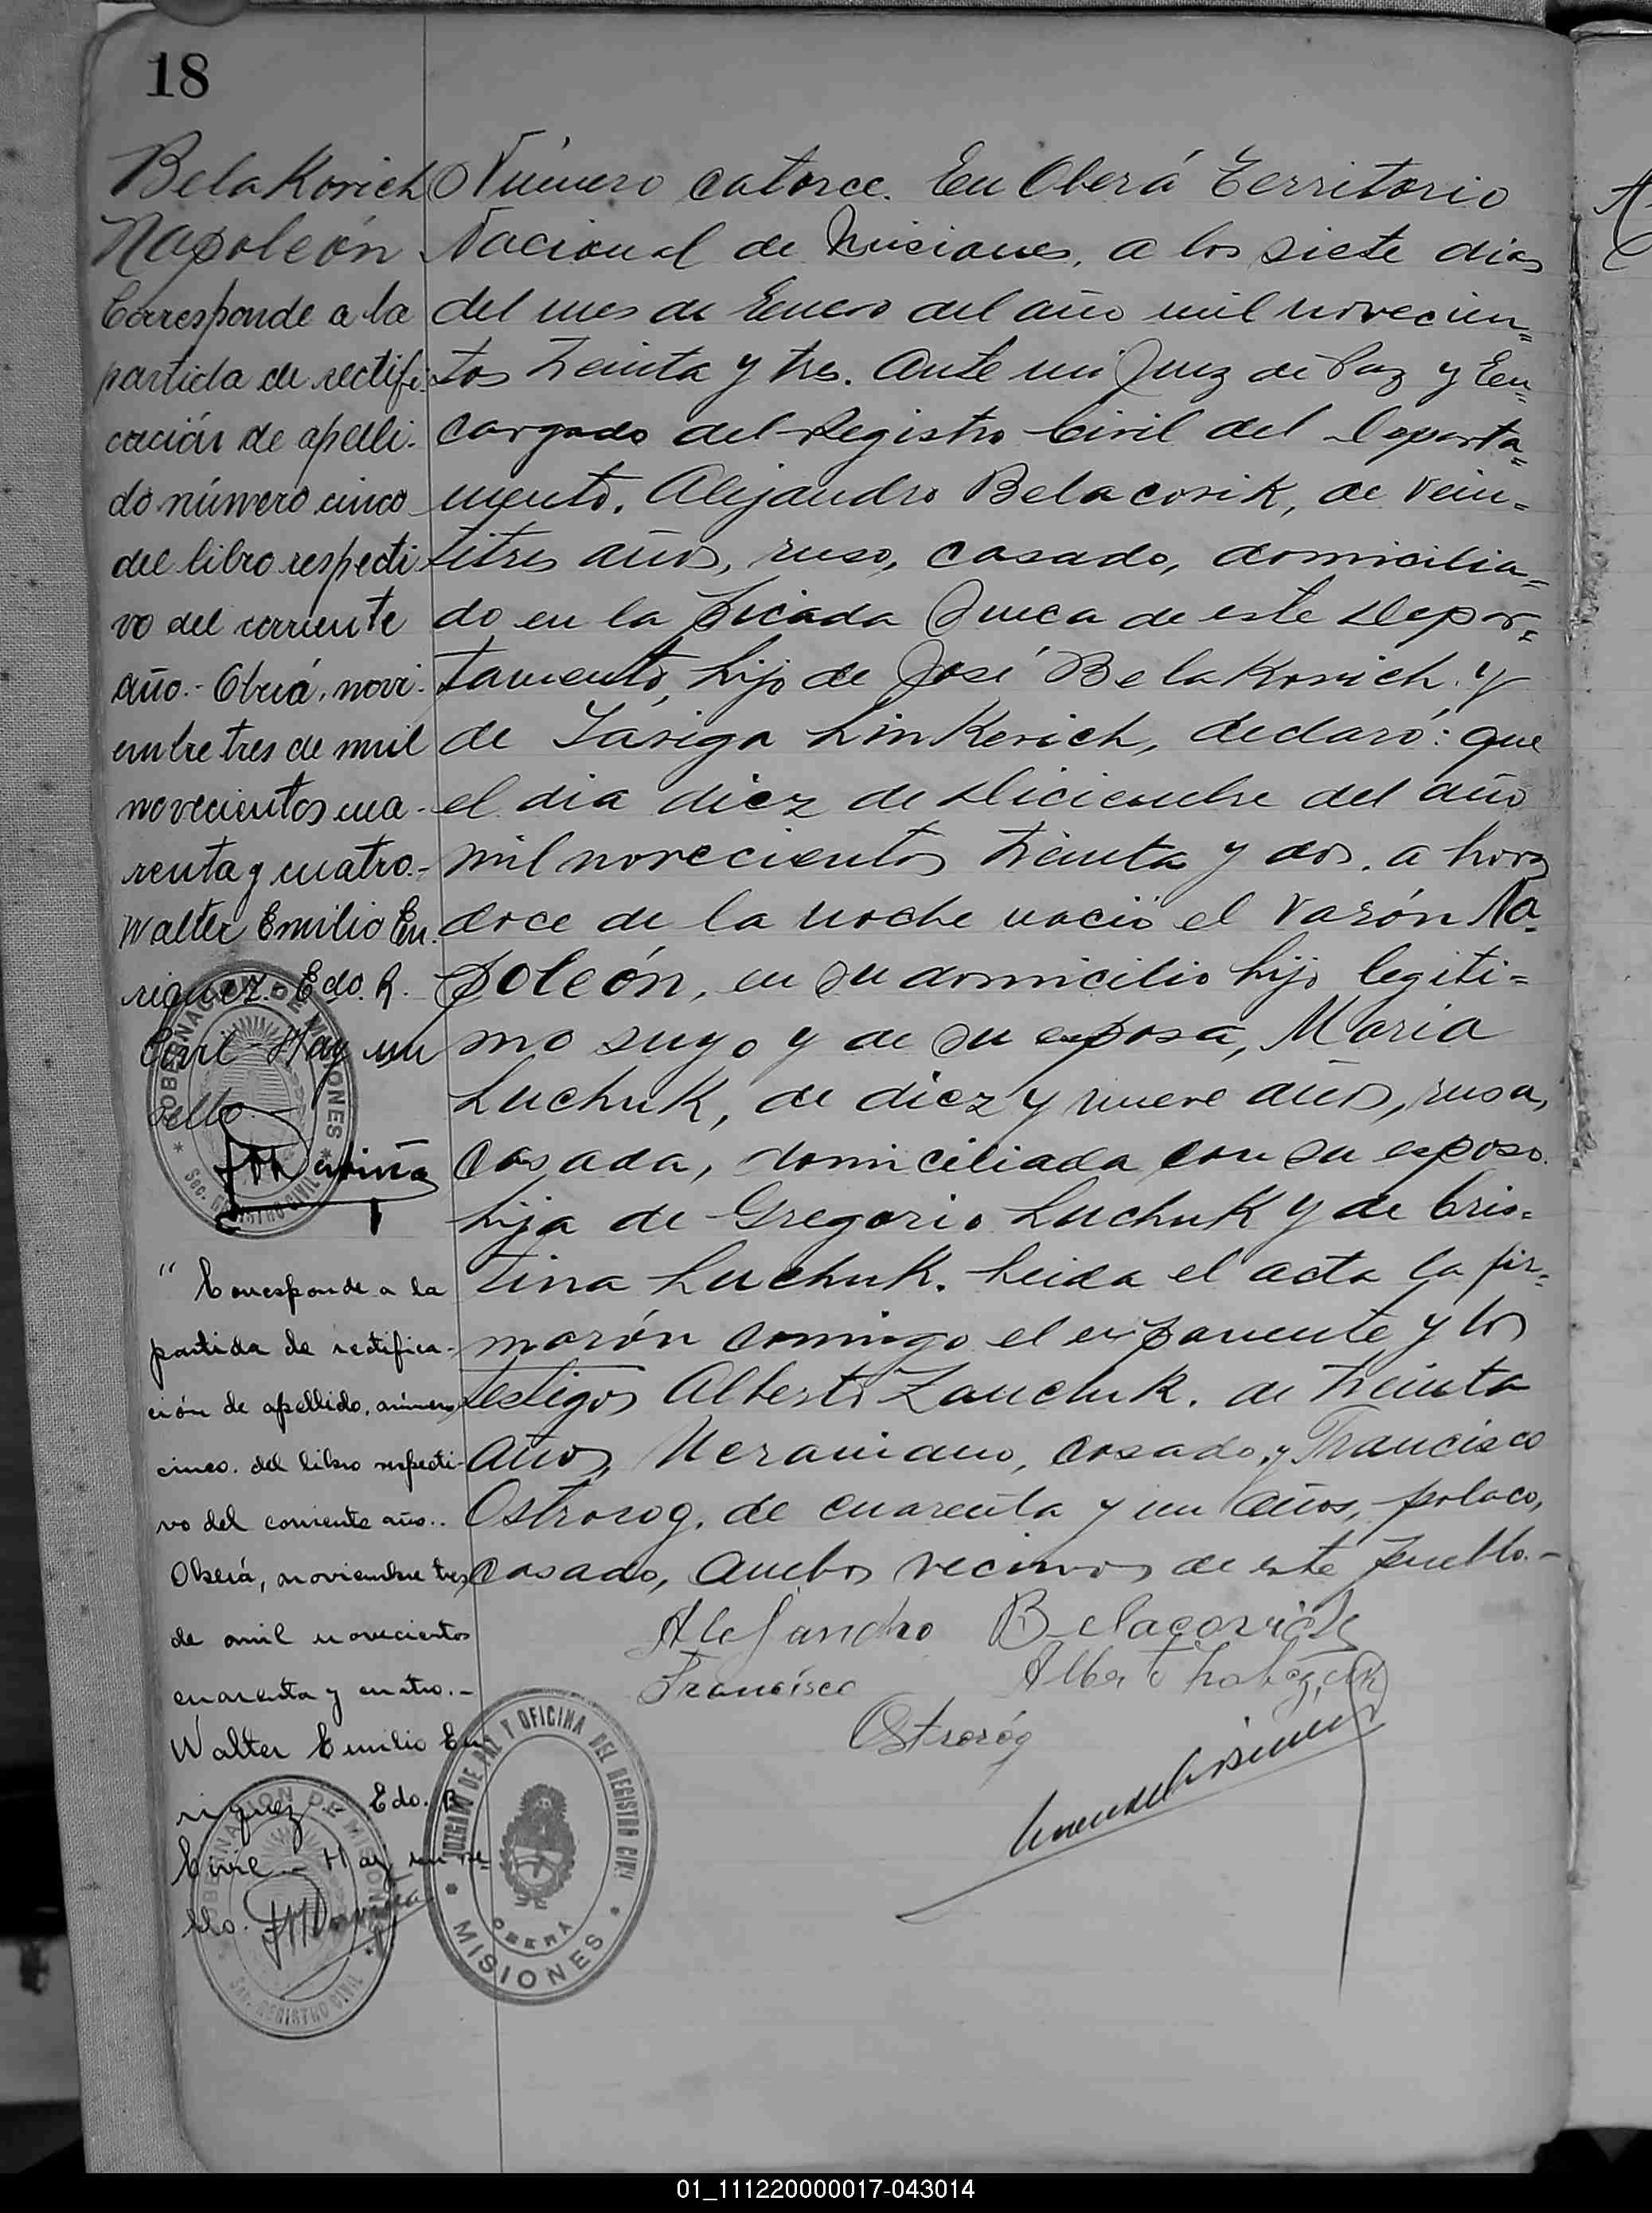 18
BelaKovich
Napoleón
Corresponde a la
partida de rectifi-
cación de apelli-
do número cinco
del libro respecti
vo del corriente
año.- Oberá, novi-
embre tres de mil
novecientos cua-
renta y cuatro.-
Walter Emilio En-
riquez.- Edo. R.
Civil - Hay un
sello -
GOBERNACION DE MISIONES
Sec. REGISTRO CIVIL
" Corresponde a la
partida de rectifica-
ción de apellido, número
cinco. del libro respecti-
vo del corriente año..
Oberá, noviembre tres
de mil novecientos
cuarenta y cuatro.-
Walter Emilio En
riquez.- Edo. R.
Civil.- Hay un se-
llo.
GOBERNACION DE MISIONES
Sec. REGISTRO CIVIL
Número catorce. En Oberá Territorio
Nacional de Misiones, a los siete dias
del mes de Enero del año mil novecien=
tos treinta y tres. Ante mi Juez de Paz y En=
cargado del Registro Civil del Departa=
mento, Alejandro BelacoviK, de vein=
titres años, ruso, casado, domicilia=
do en la Picada de este Depar=
tamento, hijo de José BelaKovich y
de LinKevich, declaró: que
el dia diez de Diciembre del año
mil novecientos treinta y dos. a horas
doce de la noche nació el varón Na-
poleón, en su domicilio hijo legiti=
mo suyo y de su esposa, Maria
LuchuK, de diez y nueve años, rusa,
casada, domiciliada con su esposo.
hija de Gregorio LuchuK y de Cris=
tina LuchuK. Leida el acta la fir=
marón conmigo el exponente y los
testigos Alberto ZauchuK. de treinta
años, Ucraniano, casado, y Francisco
Ostrorog, de cuarenta y un años, polaco,
casado, ambos vecinos de este pueblo.-
Alejandro Belacovich
Francisco Alberto
Ostroróg
JUZGADO DE PAZ Y OFICINA DEL REGISTRO CIVIL
OBERÁ
MISIONES
01_111220000017-043014